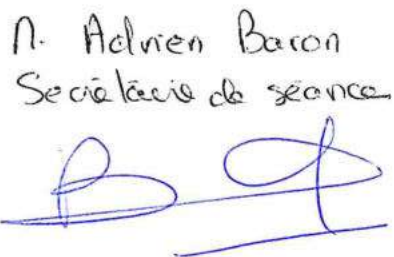 M. Adrien Baron
Secrétaire de séance